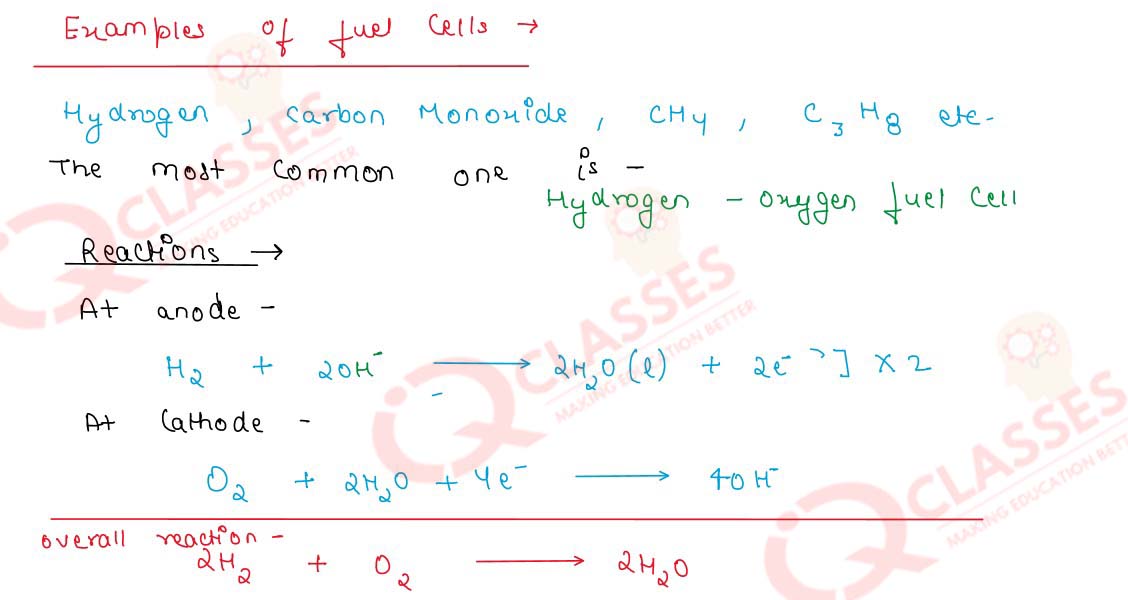 Examples of fuel Cells →
Hydrogen, Carbon Monoxide, CH4, C3H8 etc.
The most common one is -
Hydrogen - oxygen fuel cell
Reactions →
At anode -
H2 + 2OH⁻ ⟶ 2H2O(l) + 2e⁻ ] × 2
At Cathode -
O2 + 2H2O + 4e⁻ ⟶ 4OH⁻
overall reaction -
2H2 + O2 ⟶ 2H2O
CLASSES
MAKING EDUCATION BETTER
CLASSES
MAKING EDUCATION BETTER
CLASSES
MAKING EDUCATION BETT